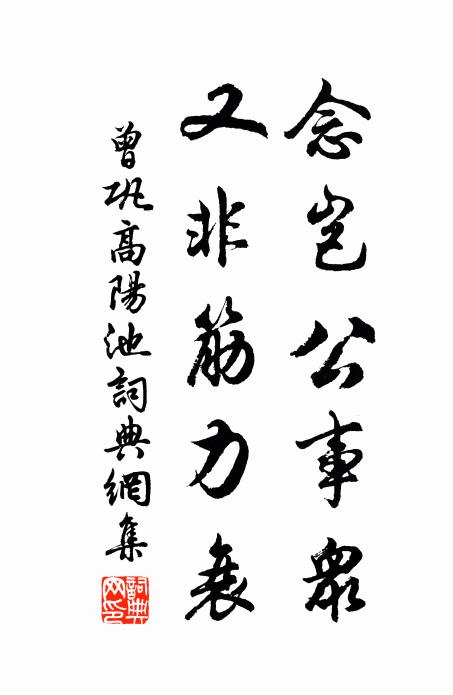 念豈公事眾
又非筋力衰
曾巩高陽池詞典網集
詞典網印